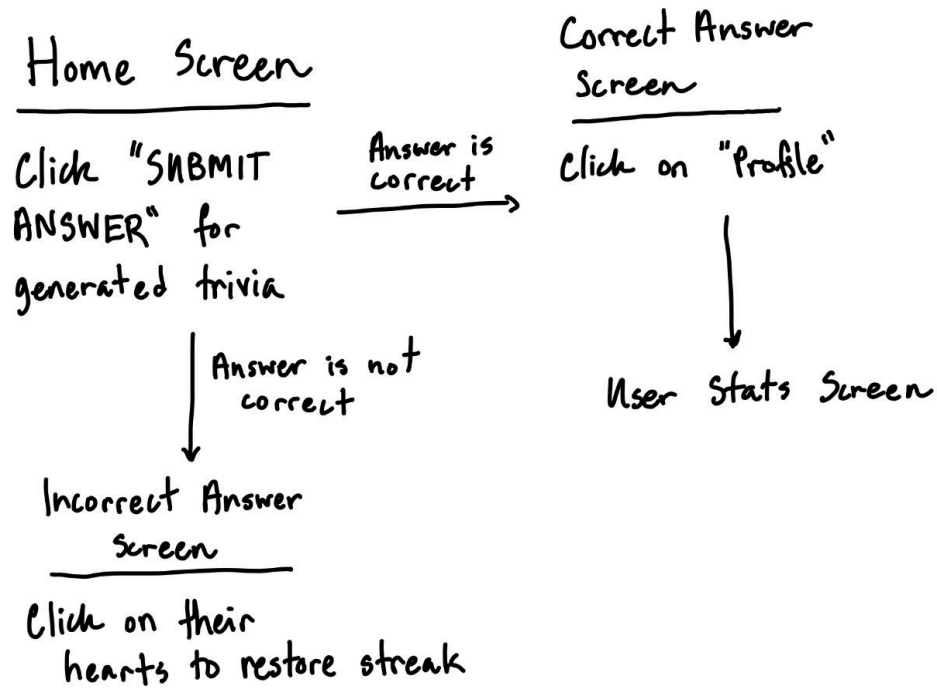 Home Screen
Click "SUBMIT
ANSWER" for
generated trivia
Answer is
correct
Correct Answer
Screen
Click on "Profile"
User Stats Screen
Answer is not
correct
Incorrect Answer
Screen
Click on their
hearts to restore streak